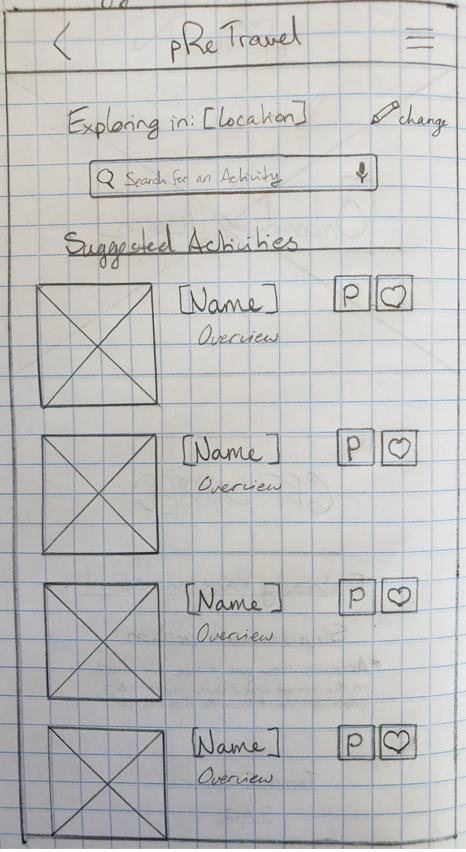 pReTravel
Exploring in: [Location] change
Search for an Activity
Suggested Activities
[Name] P
Overview
[Name] P
Overview
[Name] P
Overview
[Name] P
Overview